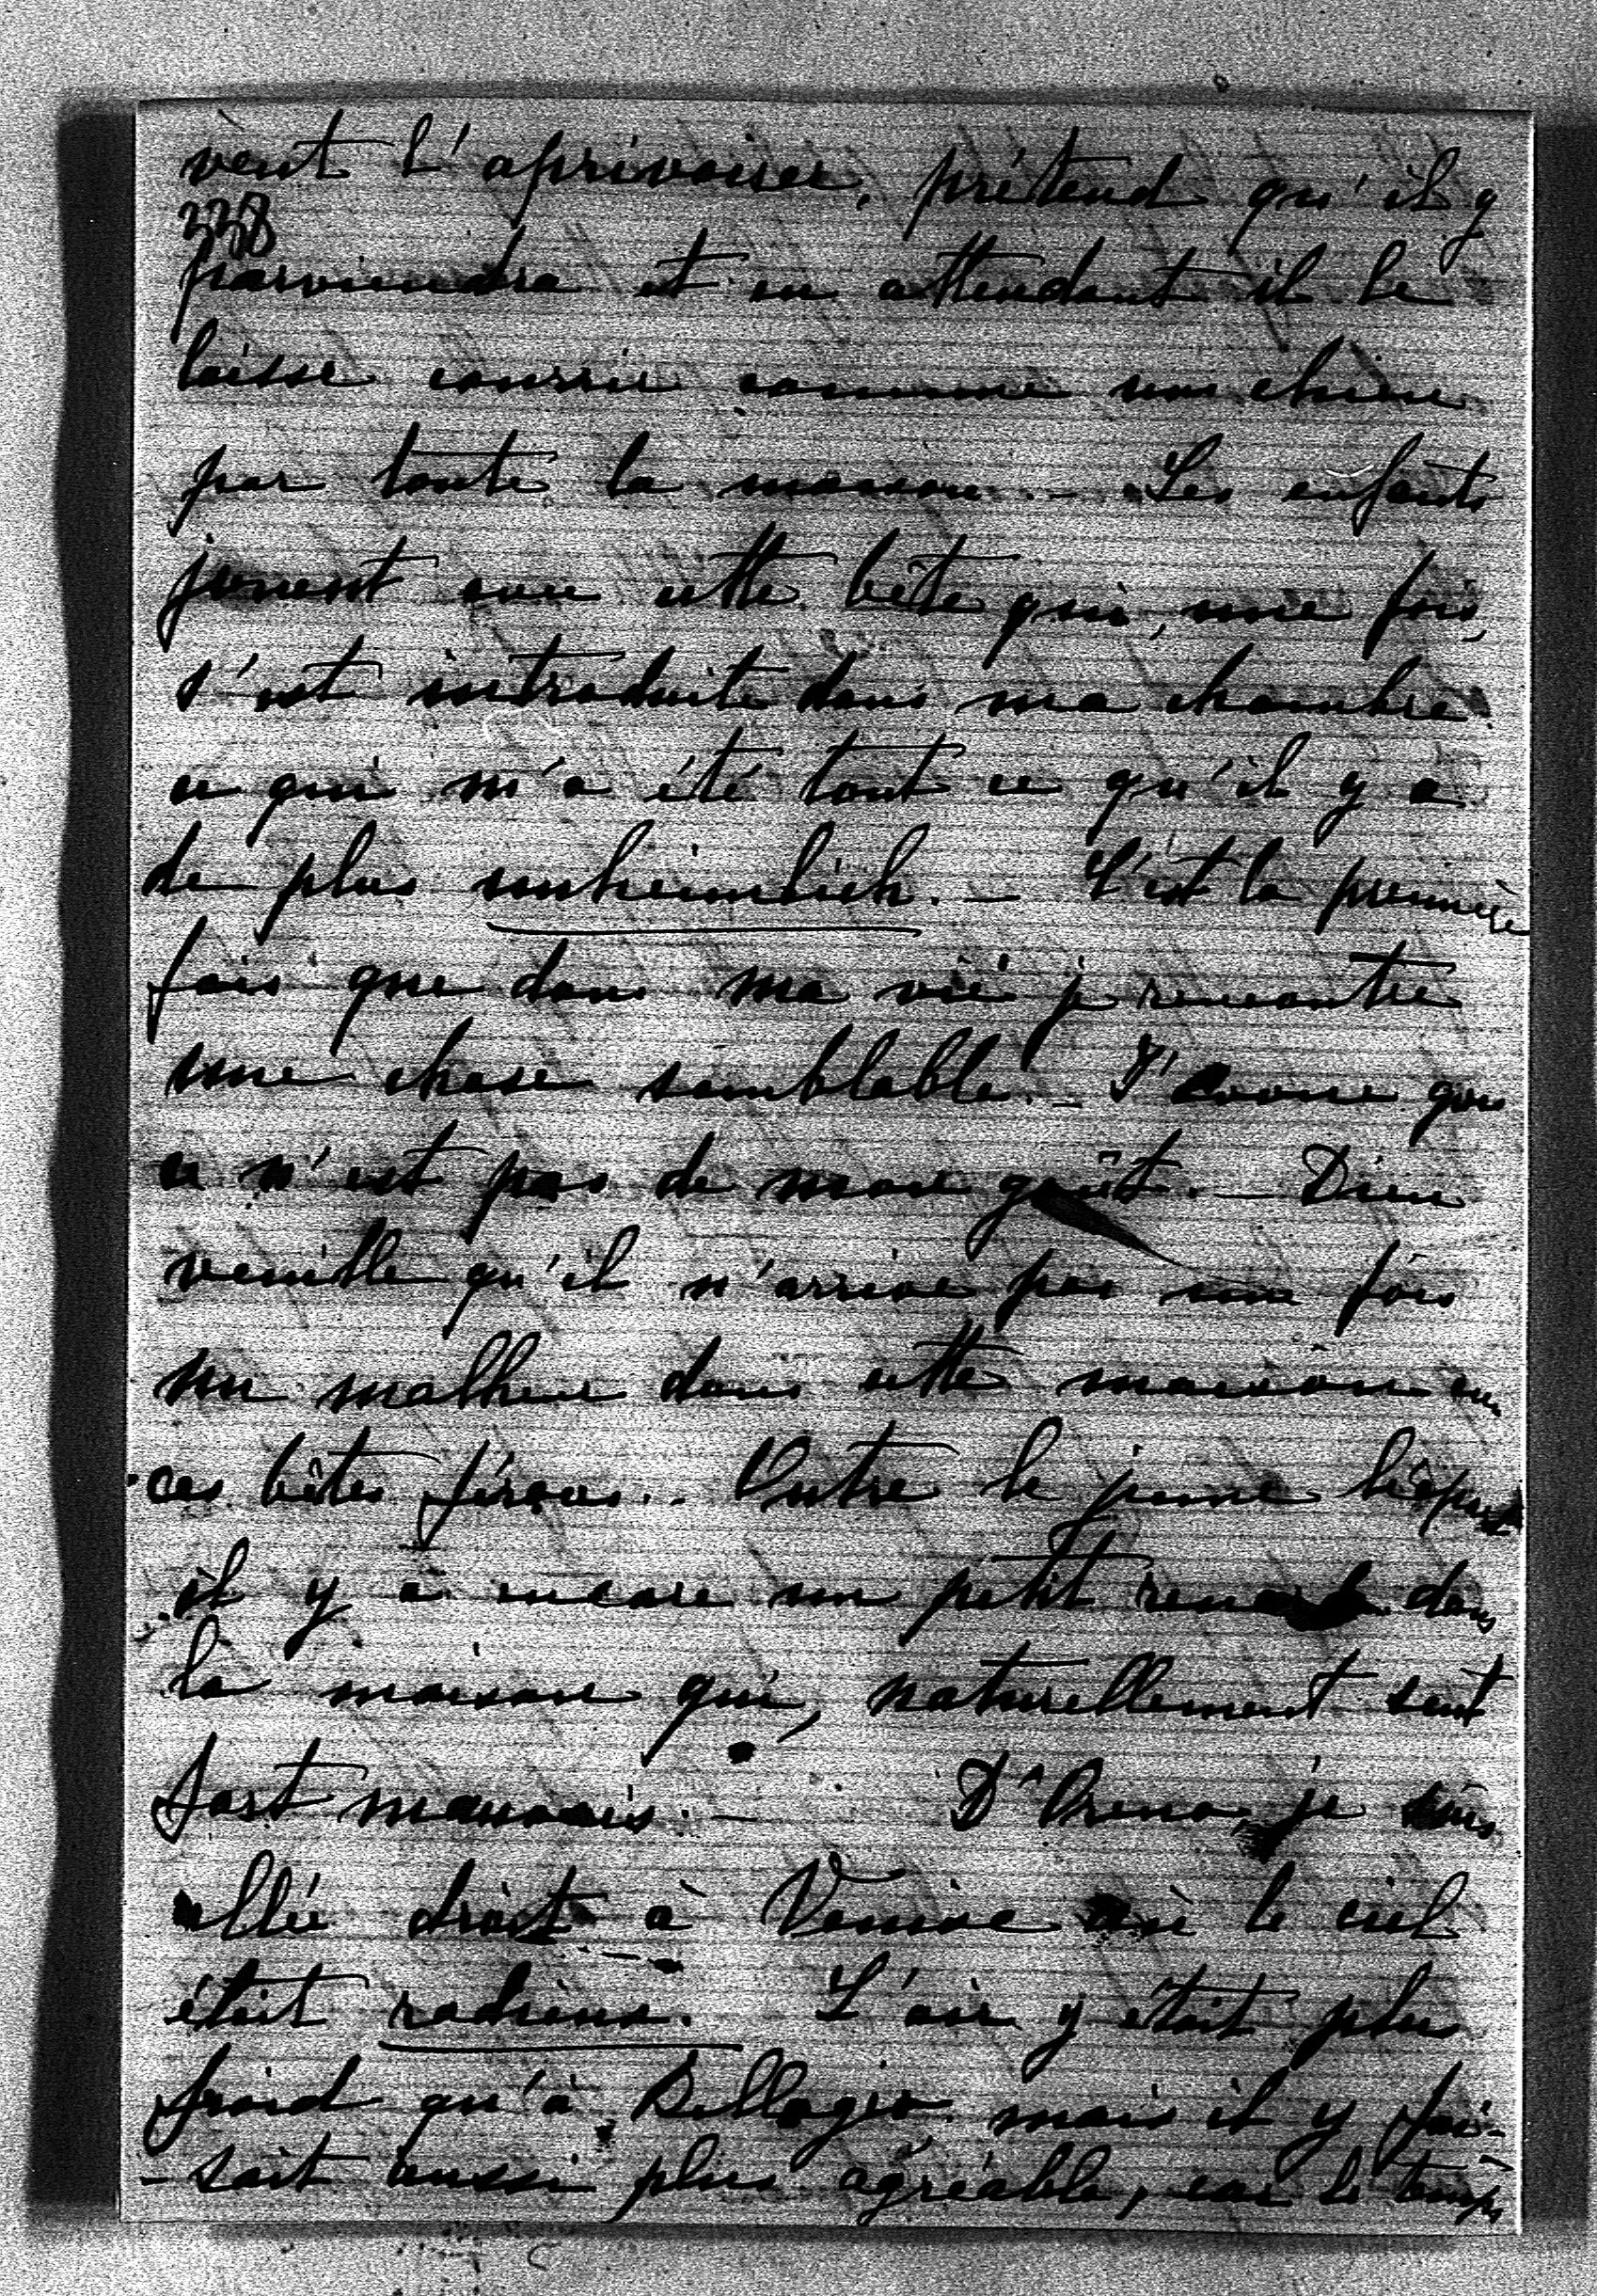 veut l'aprivoiser, prétend qu'il y
338
parviendra et en attendant il le
laisse courrir comme un chien
par toute la maison. – Les enfants
jouent avec cette bête qui, une fois,
s'est introduite dans ma chambre
ce qui m'a été tout ce qu'il y a
de plus unheimlich. – C'est la première
fois que dans ma vie je rencontre
une chose semblable. – J'avoue que
ce n'est pas de mon goût. – Dieu
veuille qu'il n'arrive pas une fois
un malheur dans cette maison avec
ces bêtes féroces. Outre le jeune léopard
il y a encore un petit renard dans
la maison qui, naturellement sent
fort mauvais. – D'Oueno, je suis
allée droit à Venise où le ciel
était radieux. L'air y était plus
froid qu'à Bellagio, mais il y fai-
-sait aussi plus agréable, car le temps